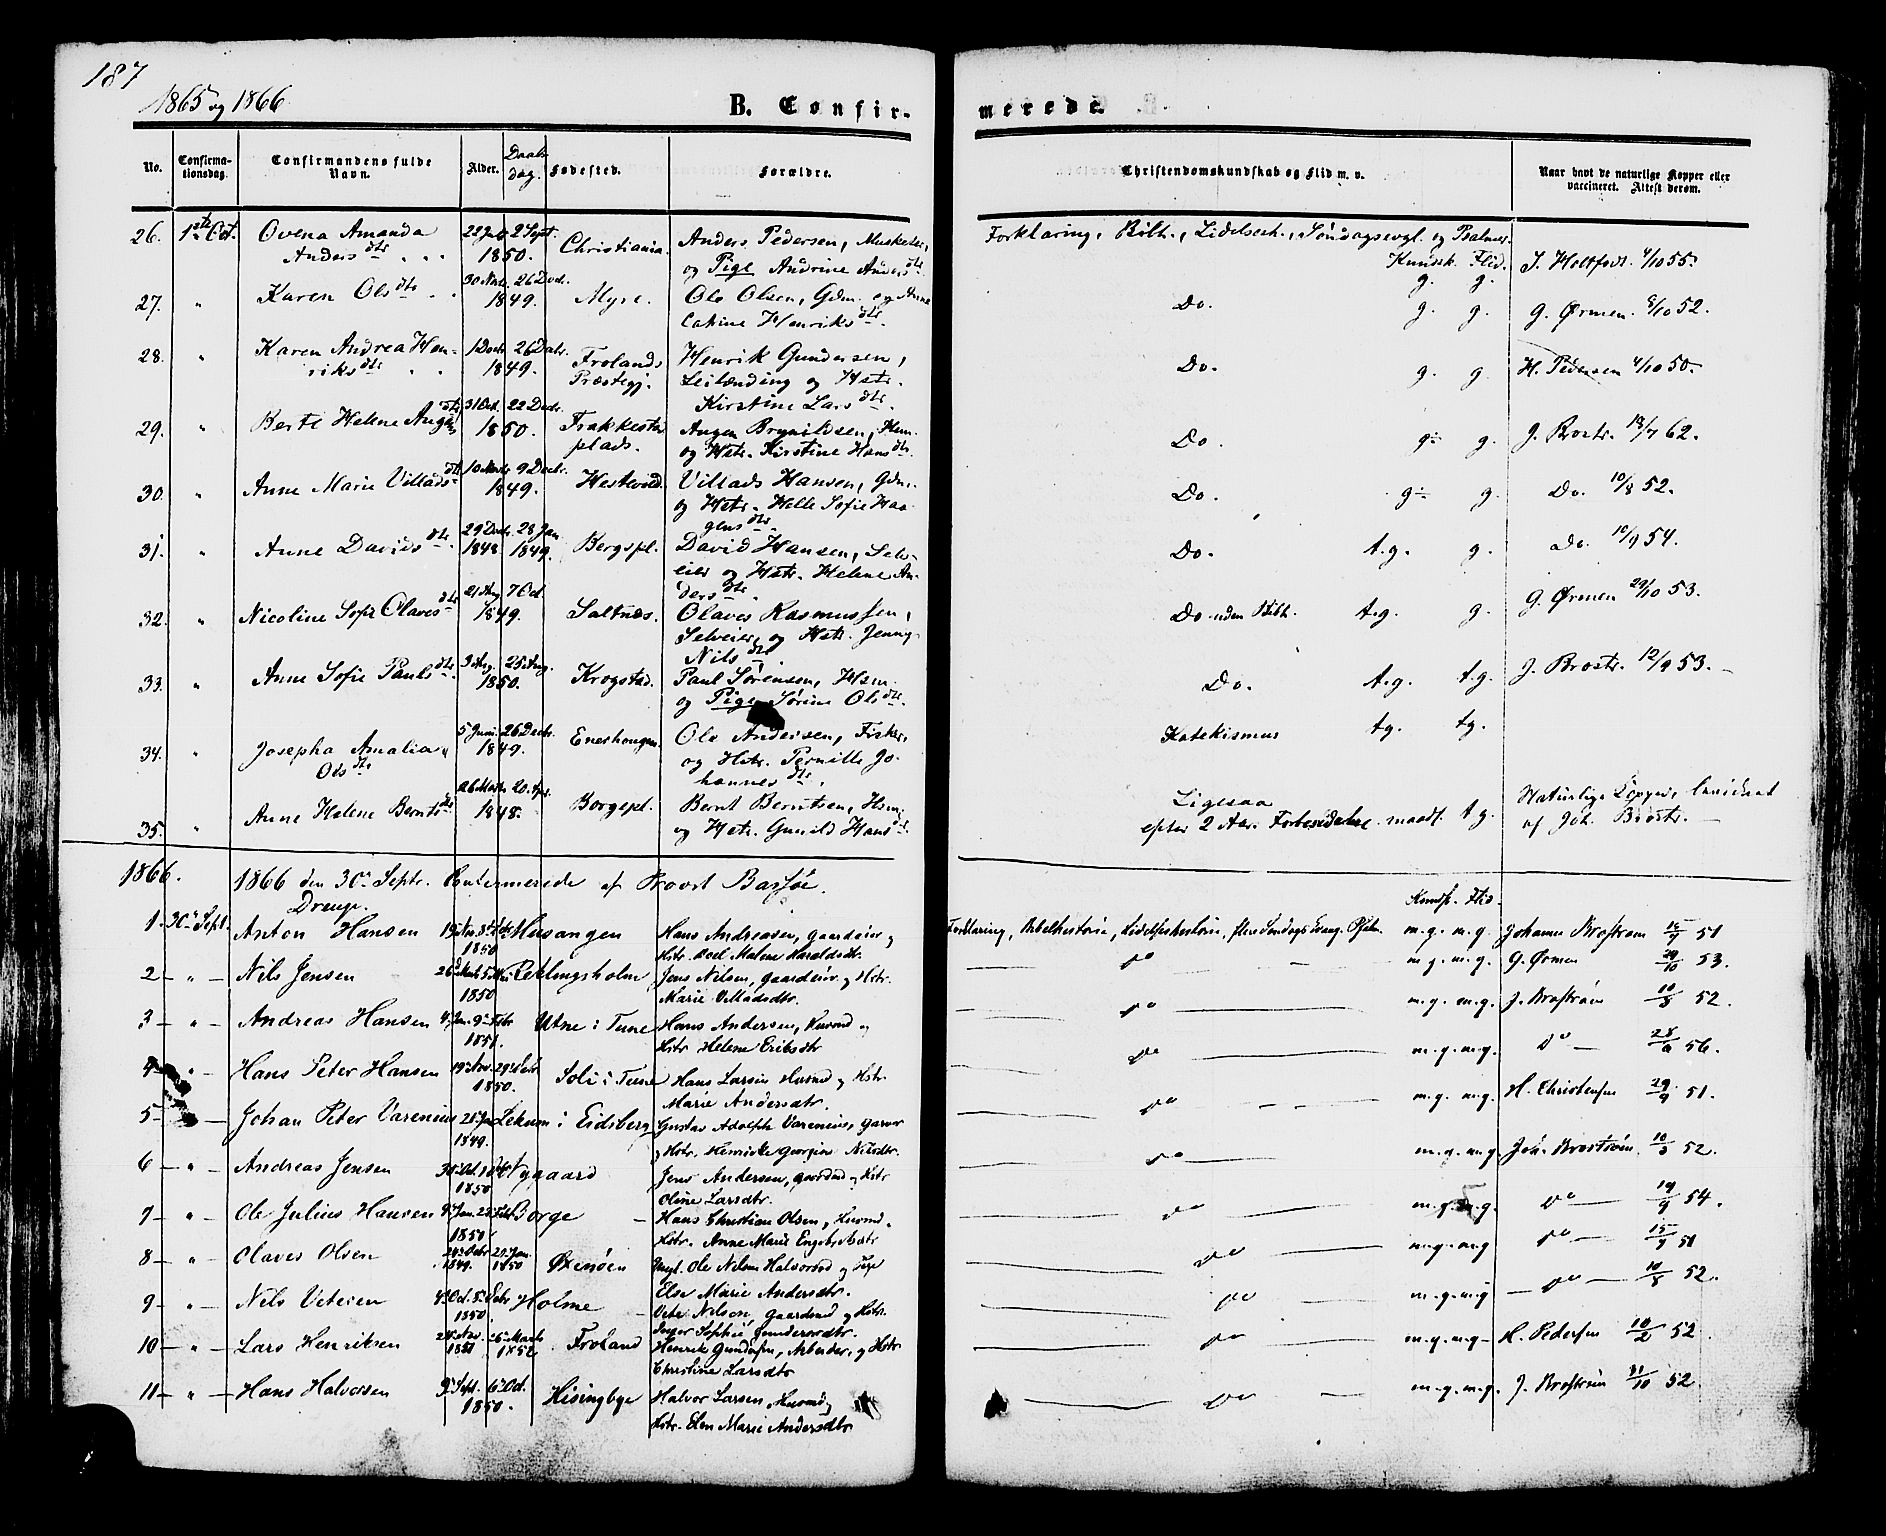 187
1865 og 1866
B. Confir-
merede.
No.
Confirma-
tionsdag.
Confirmandens fulde
Navn.
Alder.
Daabs
dag.
Fødested.
Forældre.
Christendomskundskab og Flid m. v.
Naar havt de naturlige Kopper eller
vaccineret. Attest derom.
26. 1ste Oct. Ovena Amanda 22 Juli 2 Sept. Christiania. Anders Pedersen, Musketer, Forklaring, Bibh., Lidelsesh., Søndagsevgl. og Psalmer.
Anders dtr 1850. og Pige Andrine Anders dtr. Kundsk. Flid. g. g. J. Holtfodt 4/10 55.
27. " Karen Ols dtr 30 Novbr. 26 Decb. Myre. Ole Olsen, Gdm. og Anne Do. g. g. G. Ørmen. 8/10 52.
1849. Cathine Henriks dtr.
28. " Karen Andrea Hen- 1 Decbr 26 Decbr. Frolands Henrik Gundersen, Do. g. g. H. Pedersen 4/10 50.
riks dtr 1849. Præstegj. Leilænding og Hstr.
Kirstine Lars dtr.
29. " Berte Helene Augens dtr 31 Oct. 22 Decbr. Frakkestad Augen Brynildsen, Hsm. Do. g÷ g. J. Brostr. 18/7 62.
1850. plads. og Hstr. Kirstine Hans dtr.
30. " Anne Marie Villads dtr 10 Novbr 9 Decbr. Hestevold. Villads Hansen, Gdm. Do. g÷ g. Do. 10/8 52.
1849. og Hstr. Helle Sofie Haa-
gens dtr.
31. " Anne Davids dtr. 29 Decbr. 28 Jan Bergspl. David Hansen, Selv- Do. t.g. g. Do. 10/9 54.
1848 1849. eier og Hstr. Helene An-
ders dtr.
32. " Nicoline Sofie Olaves dtr 21 Aug 7 Oct. Saltnæs. Olaves Rasmussen, Do. uden Bibh. t.g. g. G. Ørmen 29/10 53.
1849. Selveier, og Hstr. Jenny
Nils dtr.
33. " Anne Sofie Pauls dtr. 3 Aug. 25 Aug. Krogstad. Paul Sørensen, Hsm. Do. t.g. t.g. J. Brostr. 12/9 53.
1850. og Pige Sørine Ols dtr.
34. " Josepha Amalia 5 Juni 26 Decbr. Enerhougen. Ole Andersen, Fisker, Katekismus tg. tg.
Ols dtr 1849. og Hstr. Pernille Jo-
hannes dtr.
35. " Anne Helene Bernts dtr 26 Marts 20 Apr. Borgepl. Bernt Berntsen, Hsm. Ligesaa Naturlige Kopper,
1848. og Hstr. Gunild Hans dtr efter 2 Aars Forberedelse maadl. t.g. af Joh. Brostr.
1866. 1866 den 30te Septr. Confirmerede af Provst Barføe.
Drenge. Kundsk. Flid.
1. 30te Septr. Anton Hansen 19 Nov. Husangen Hans Andreasen, gaardeier og Forklaring, Bibelhistorie, Lidelseshistorie, flere Søndags Evang. Psalm. m.g. m.g. Johannes Brostrøm 15/7 51
1850 Hstr. Boel Malene Haraldsdtr.
2 — " — Nils Jensen Peklingsholm Jens Nilsen, gaardeier og Hstr. do m.g. m.g. G. Ørmen 29/10 53.
1850 Marie Villadsdtr.
3 — " — Andreas Hansen 4 Jan. 9 Febr Utne i Tune Hans Andersen, Husmd og do m.g. m.g. J. Brostrøm 10/8 52.
1851. Hstr Helene Eriksdtr
4 " — Hans Peter Hansen 19 Nov. 29 Decbr Soli i Tune Hans Larsen Husmd og Hstr. do m.g. m.g. do — 28/6 56.
1850. Marie Andersdtr.
5 — Johan Peter Varenius Lekum i Eidsberg Gustav Adolph Varenius, garver do m.g. m.g. H. Christensen 29/9 51.
1849. og Hstr. Henriette Georgine Nilsdtr.
6 — " — Andreas Jensen Nygaard Jens Andersen, gaardmd og Hstr do m.g. m.g. Joh. Brostrøm 10/8 52.
1850 Oline Larsdtr.
7 — " — Ole Julius Hansen 9 Jan. Borge Hans Christian Olsen, Husmd. do m.g. m.g. do — 19/9 54.
1850 Hstr. Anne Marie Engebretsdtr
8 — " — Olaves Olsen 24 Octbr 20 Jan. Øxenøen Ungk. Ole Nilsen Halvorsrød og Pige do m.g. m.g do — 15/7 51
1849. 1850 Else Marie Andersdtr.
9 — " — Nils Vetesen Holme Vete Nilsen, gaardmd og Hstr. do m.g. m.g — do — 10/8 52.
1850. Inger Sophie Gundersdtr.
10 — " — Lars Henriksen 24 Nov. 26 Marts Froland Henrik Gundersen, Arbeider, og Hstr do m.g. m.g — H. Pedersen 10/2 52
1851 1852 Christine Larsdtr
11 — " — Hans Halvorsen 9 Sept. 6 Oct. Hisingbye Halvor Larsen, Husmd og do m.g. m.g. J. Brostrøm 21/10 52.
1850. Hstr. Elen Marie Andersdtr.